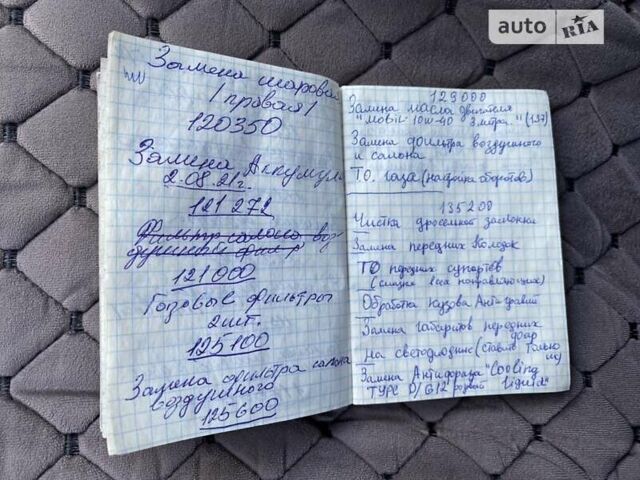 auto RIA
Замена шаровая
/правая/
120350
Замена Аккумул
2.08.21г.
121 272
Фильтр салона воз
душный фильтр
121000
Газовые Фильтры
2шт.
125100
Замена фильтра салона
воздушного
125600
129000
Замена масла двигателя
"Mobil 10W-40 3 литра" (137)
Замена фильтра воздушного
и салона
ТО. газа (настройка оборотов)
135200
Чистка дросельной заслонки
Замена передних Колодок
ТО передних супортов
(смазка всех направляющих)
Обработка кузова Антигравий
Замена габаритов передних
фар
на светодиодные (ставить только
их)
Замена Антифриза "Cooling
TYPE D/G12 розовый Liquid"